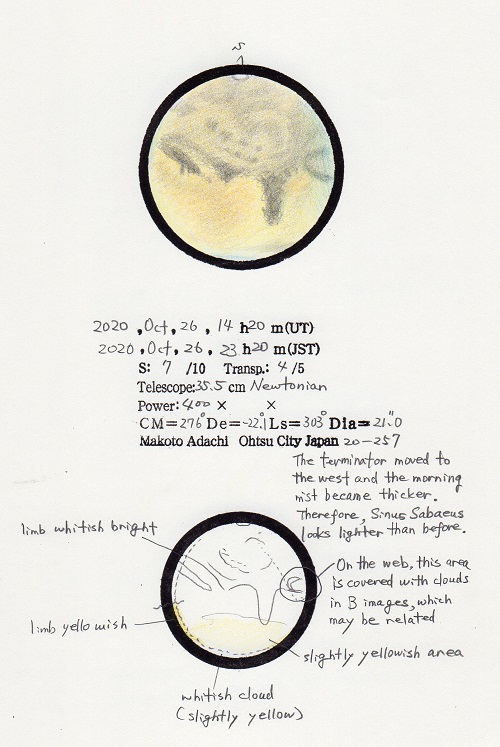 S
2020, Oct, 26, 14 h20 m(UT)
2020, Oct, 26, 23 h20 m(JST)
S: 7 /10 Transp.: 4/5
Telescope: 35.5 cm Newtonian
Power: 400 × ×
CM=276° De=-22.1 Ls=303° Dia=21."0
Makoto Adachi Ohtsu City Japan 20-257
The terminator moved to
the west and the morning
mist became thicker.
Therefore, Sinus Sabaeus
looks lighter than before.
limb whitish bright
On the web, this area
is covered with clouds
in B images, which
may be related
limb yellowish
slightly yellowish area
whitish cloud
(slightly yellow)